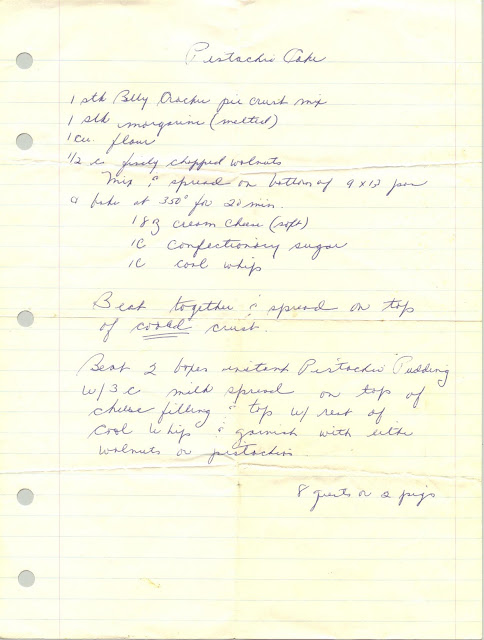 Pistachio Cake
1 stk Betty Crocker pie crust mix
1 stk margarine (melted)
1 cu. flour
1/2 c finely chopped walnuts
Mix & spread on bottom of 9 x 13 pan
& bake at 350° for 20 min.
1 8 oz cream cheese (soft)
1C confectionary sugar
1C cool whip
Beat together & spread on top
of cooled crust.
Beat 2 boxes instant Pistachio Pudding
w/3 c milk spread on top of
cheese filling & top w/ rest of
Cool Whip & garnish with either
walnuts or pistachios.
8 guests or 2 pigs